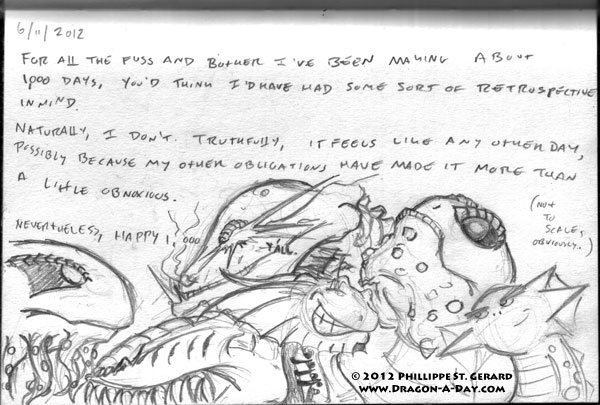 6/11/2012
FOR ALL THE FUSS AND BOTHER I'VE BEEN MAKING ABOUT
1,000 DAYS, YOU'D THINK I'D HAVE HAD SOME SORT OF RETROSPECTIVE
IN MIND.
NATURALLY, I DON'T. TRUTHFULLY, IT FEELS LIKE ANY OTHER DAY,
POSSIBLY BECAUSE MY OTHER OBLIGATIONS HAVE MADE IT MORE THAN
A LITTLE OBNOXIOUS.
NEVERTHELESS, HAPPY 1,000
Y'ALL.
(NOT
TO
SCALE,
OBVIOUSLY.)
© 2012 PHILLIPPE ST. GERARD
WWW.DRAGON-A-DAY.COM